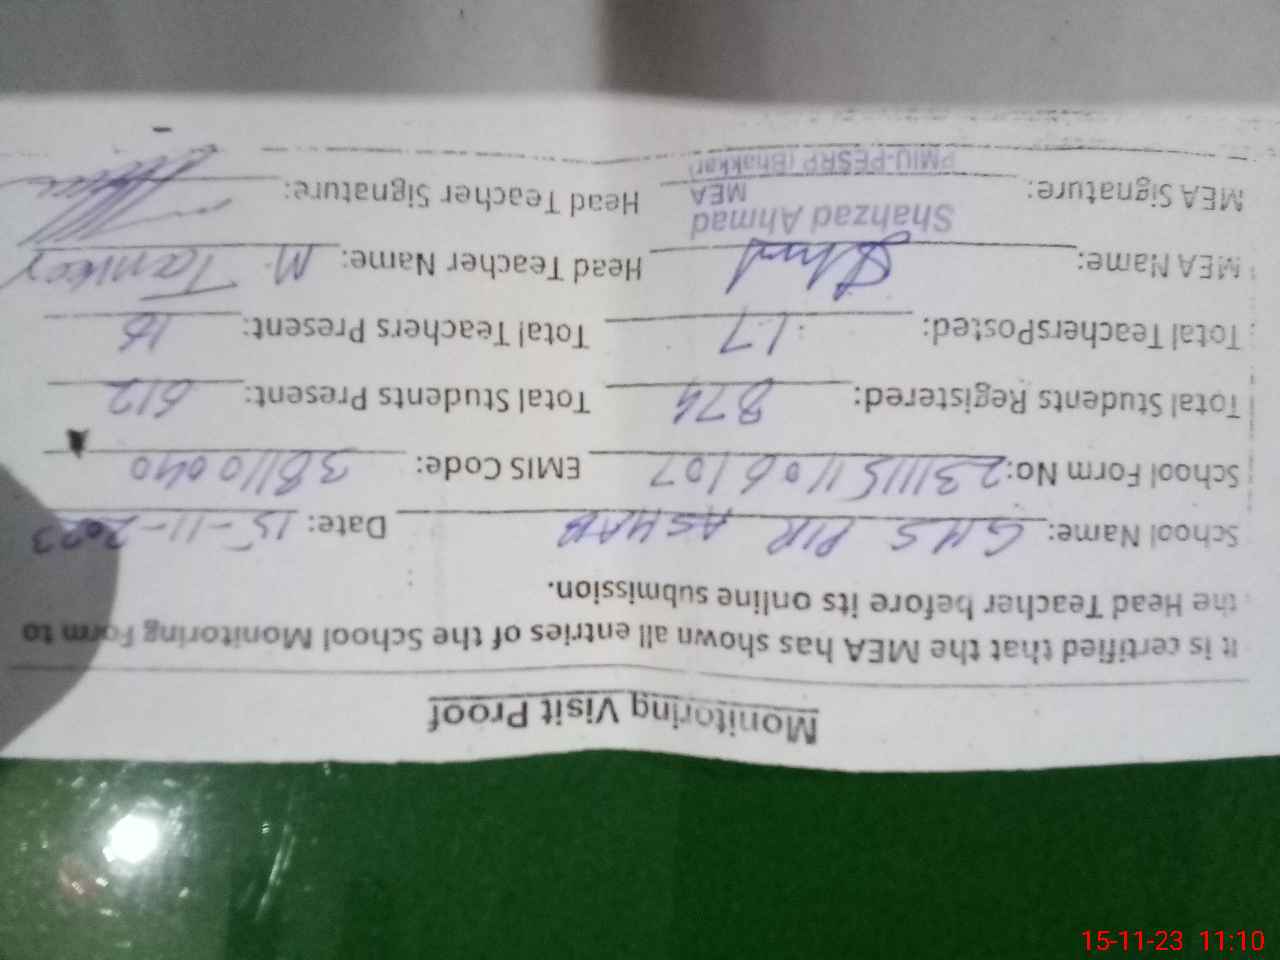 Monitoring Visit Proof
It is certified that the MEA has shown all entries of the School Monitoring Form to
the Head Teacher before its online submission.
School Name: GHS PIR ASHAB Date: 15-11-2023
School Form No: 2311151106107 EMIS Code: 38110040
Total Students Registered: 874 Total Students Present: 612
Total TeachersPosted: 17 Total Teachers Present: 16
MEA Name: Head Teacher Name: M. Tanveer
Shahzad Ahmad
MEA
MEA Signature: Head Teacher Signature:
PMIU-PESRP (Bhakkar)
15-11-23 11:10